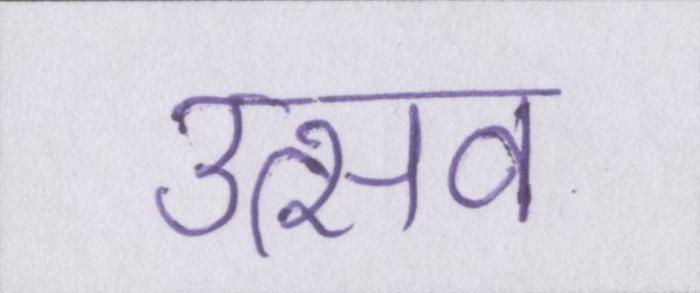 उत्सव